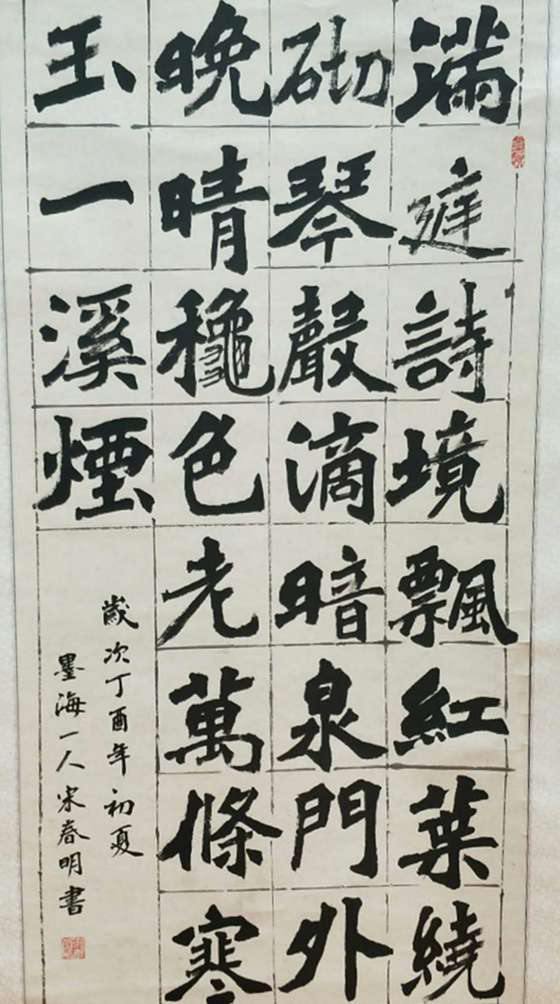 滿庭詩境飄紅葉繞
砌琴聲滴暗泉門外
晚晴龝色老萬條寒
玉一溪煙
歲次丁酉年初夏
墨海一人宋春明書